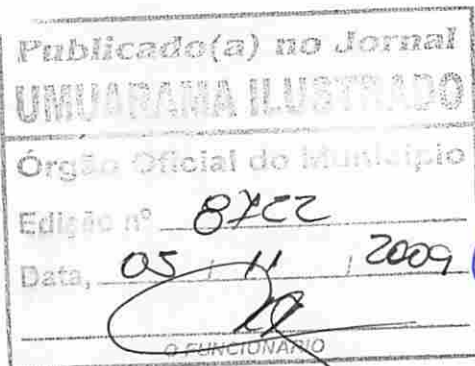 Publicado(a) no Jornal
UMUARAMA ILUSTRADO
Órgão Oficial do Município
Edição nº 8722
Data, 05 / 11 / 2009
O FUNCIONÁRIO